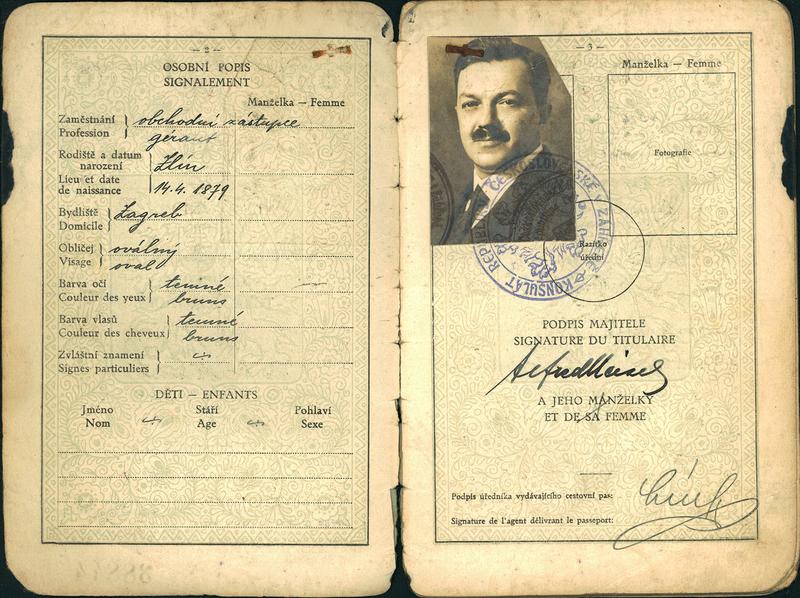 — 2 —
OSOBNÍ POPIS
SIGNALEMENT
Manželka — Femme
Zaměstnání
Profession
obchodní zástupce
gérant
Rodiště a datum
narození
Lieu et date
de naissance
Zlín
14.4. 1879
Bydliště
Domicile
Zagreb
Obličej
Visage
oválný
oval
Barva očí
Couleur des yeux
temné
bruns
Barva vlasů
Couleur des cheveux
temné
bruns
Zvláštní znamení
Signes particuliers
DĚTI — ENFANTS
Jméno Stáří Pohlaví
Nom Age Sexe
— 3 —
Manželka — Femme
Fotografie
Razítko
úřední
KONSULÁT REPUBLIKY ČESKOSLOVENSKÉ V ZÁHŘEBĚ
PODPIS MAJITELE
SIGNATURE DU TITULAIRE
Alfred Meisel
A JEHO MANŽELKY
ET DE SA FEMME
Podpis úředníka vydávajícího cestovní pas:
Signature de l'agent délivrant le passeport: